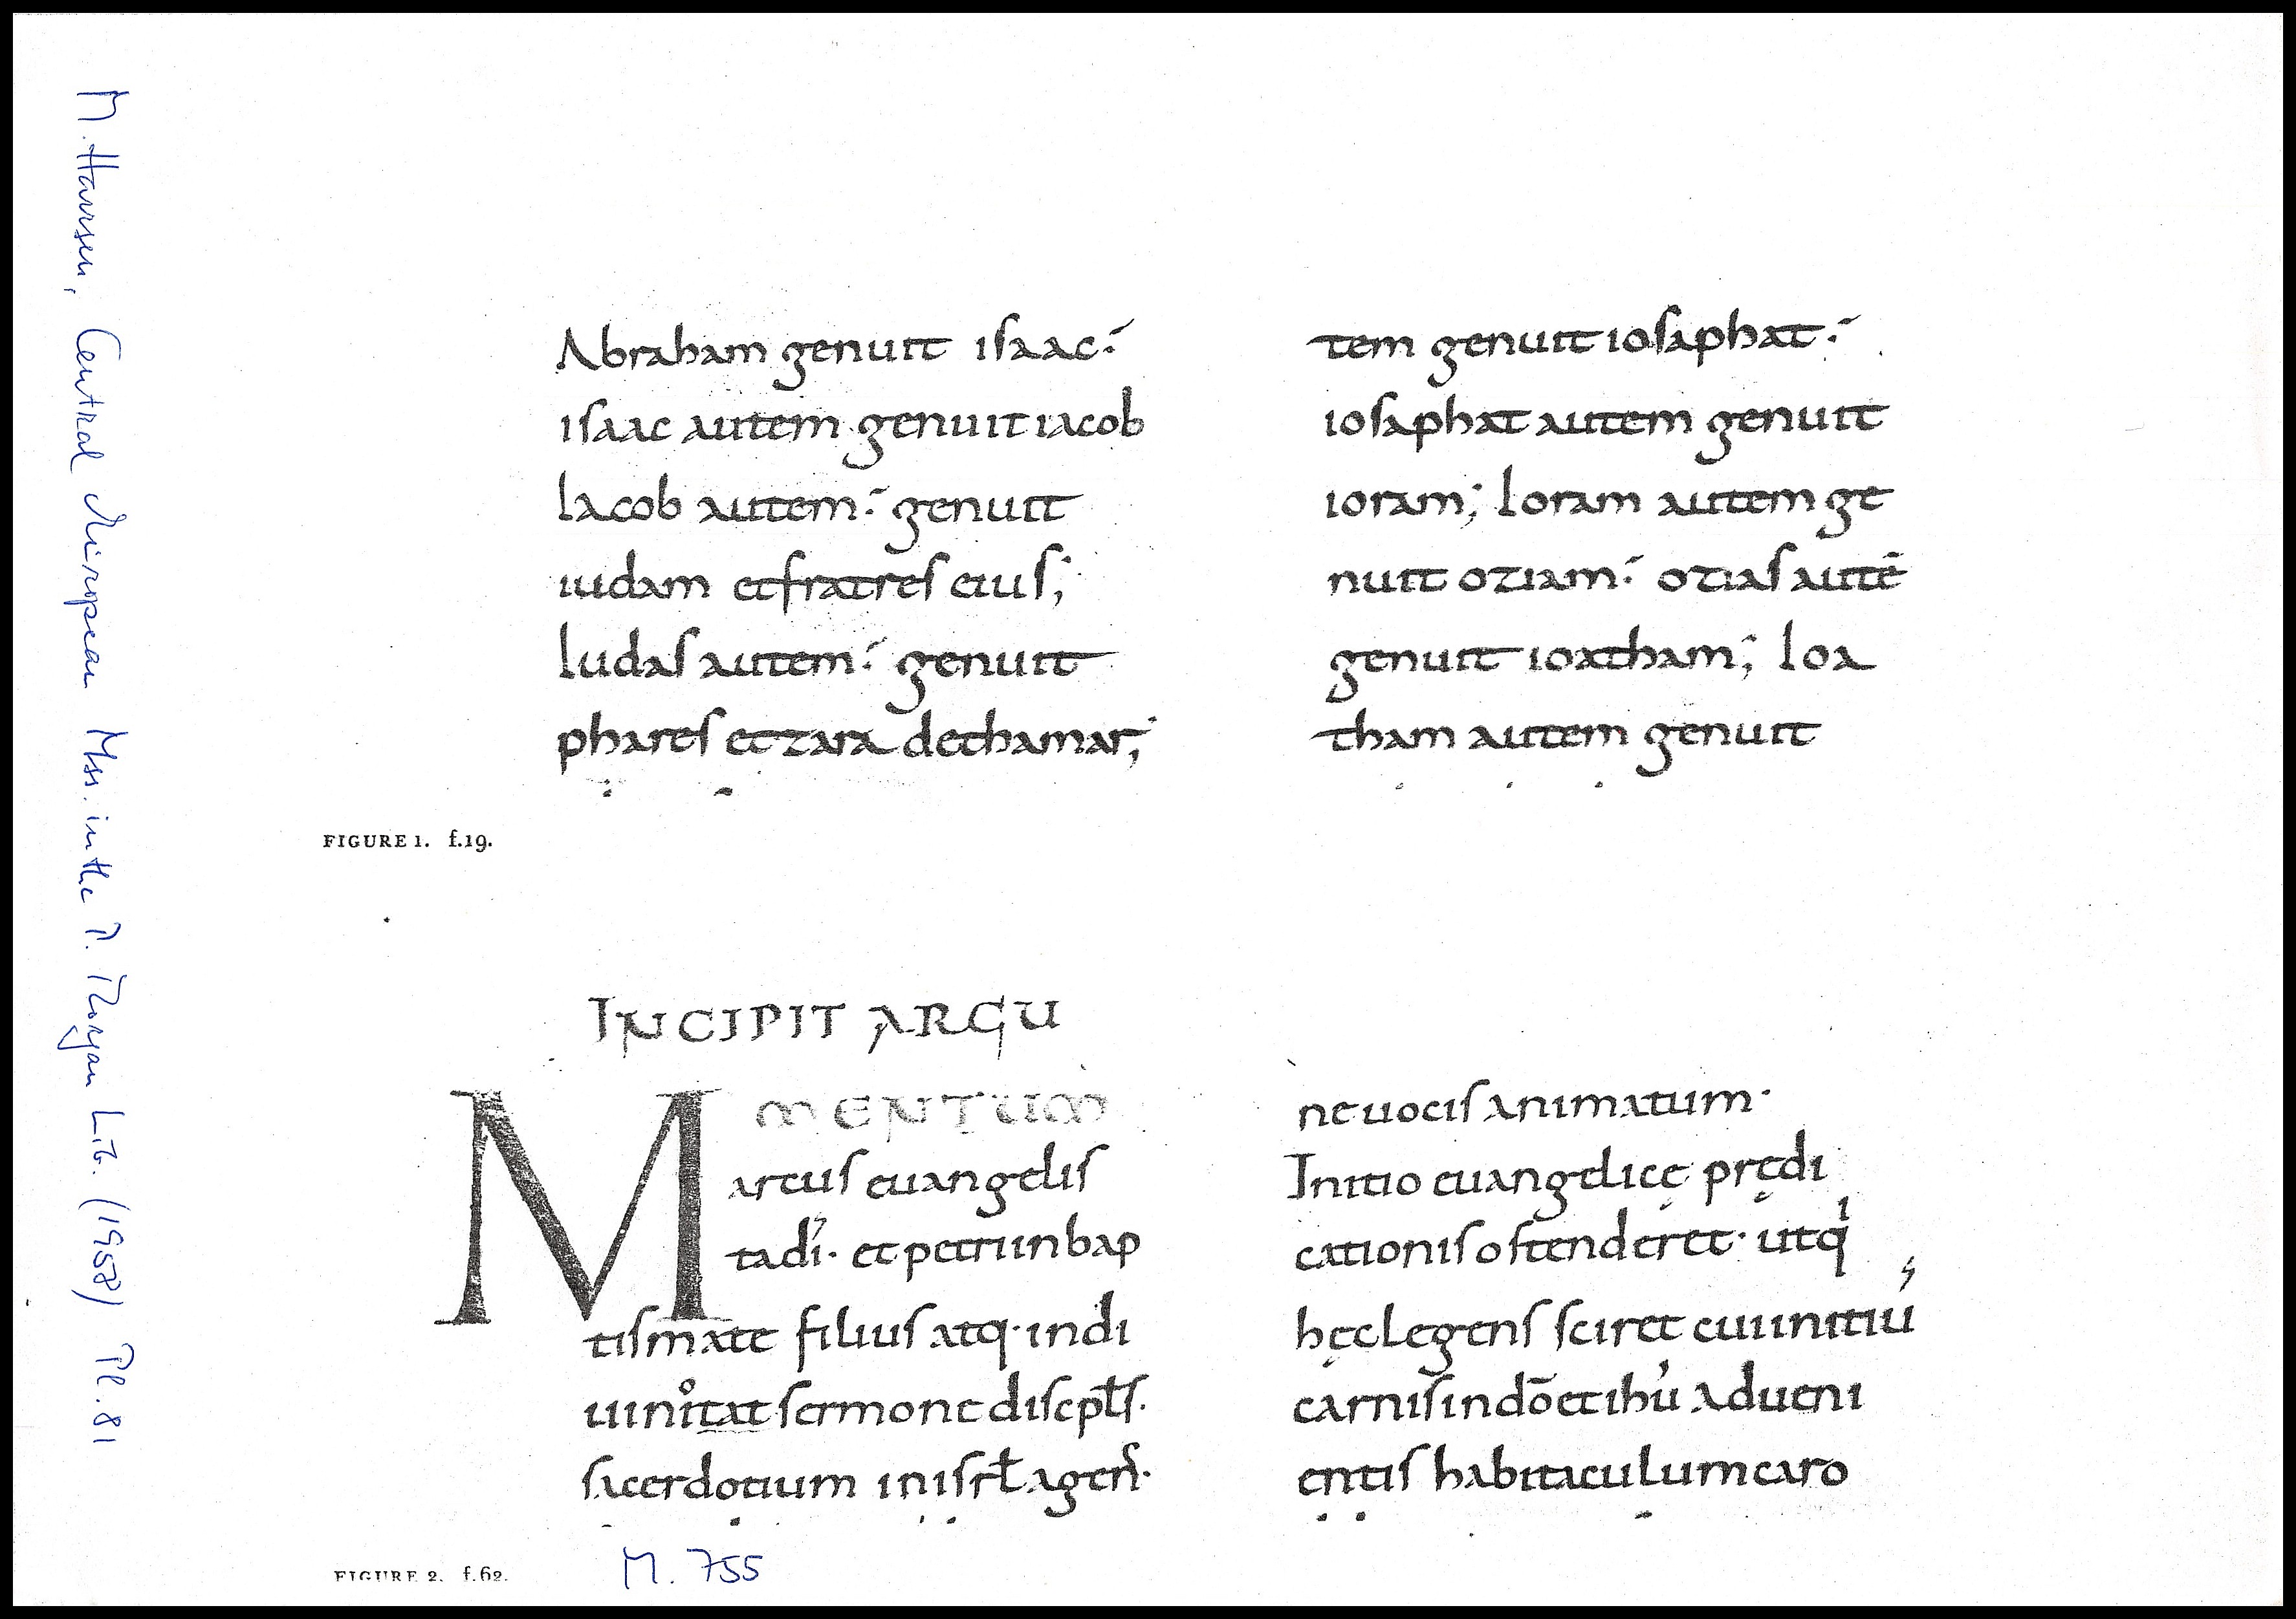 M. Harrsen, Central European Mss. in the P. Morgan Lib. (1958) Pl. 81
Abraham genuit isaac:
isaac autem genuit iacob
Iacob autem: genuit
iudam et fratres eius;
Iudas autem: genuit
phares et zara de thamar;
tem genuit iosaphat:
iosaphat autem genuit
ioram; Ioram autem ge
nuit oziam: ozias autē
genuit ioatham; Ioa
tham autem genuit
FIGURE 1. f.19.
INCIPIT ARGU
MENTUM
Marcus euangelis
ta di. et petri in bap
tismate filius atq. in di
uino itat sermone discpłs.
sacerdotium in isrł agens.
ne uocis animatum.
Initio euangelicę prędi
cationis ostenderet. ut qi
hęc legens sciret cui initiū
carnis in dō et ihu adueni
entis habitaculum caro
FIGURE 2. f.62.
M. 755